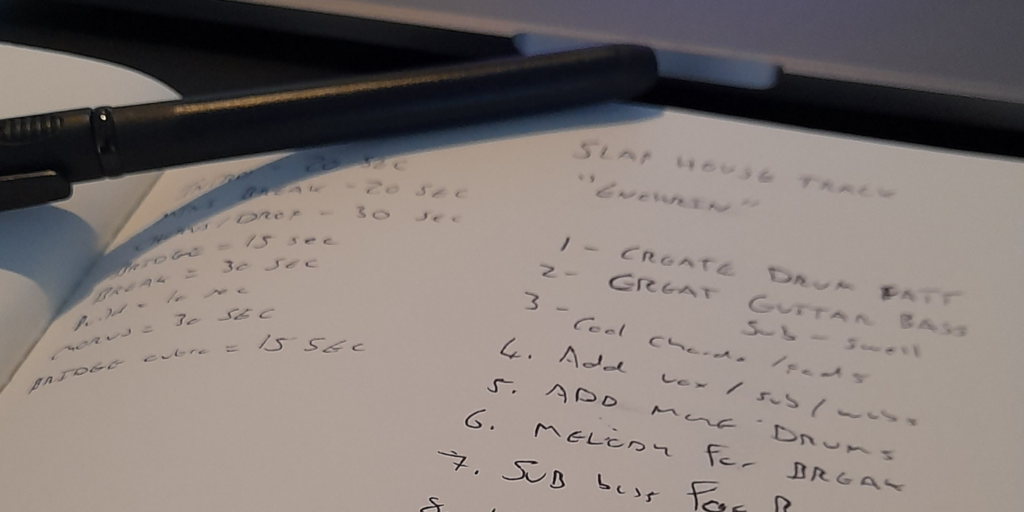 SEC
BREAK - 20 SEC
/DROP - 30 SEC
BRIDGE = 15 sec
BREAK = 30 SEC
Build = 10 sec
CHORUS = 30 SEC
BRIDGE outro = 15 SEC
SLAP HOUSE TRACK
1 - CREATE DRUM PATT
2 - GREAT GUITAR BASS
Sub - swell
3 - Cool Chords / pads
4. Add vox / sub /
5. ADD MORE DRUMS
6. MELODY for BREAK
7. SUB bass For
8.